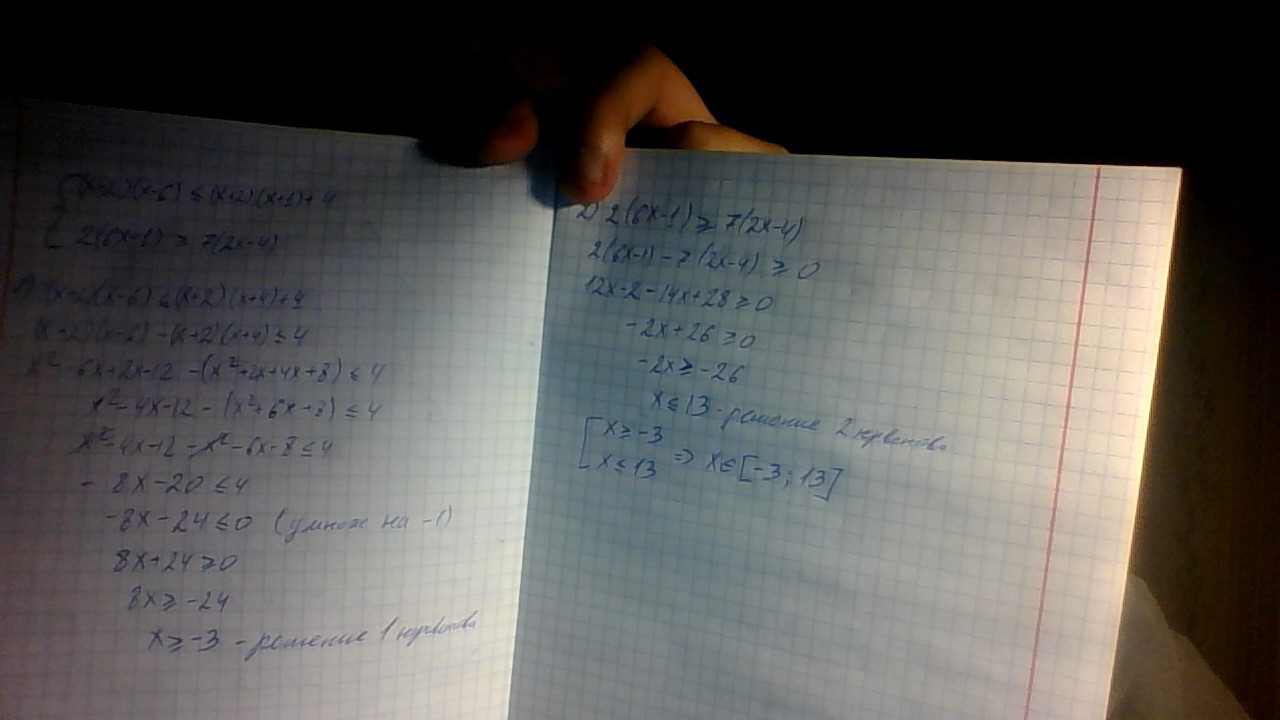 (x-2)(x-6) ≤ (x+2)(x+1)+4
2(6x-1) ≥ 7(2x-4)
1) (x-2)(x-6) ≤ (x+2)(x+4)+4
(x+2)(x-6) - (x+2)(x+4) ≤ 4
x²-6x+2x-12 -(x²+2x+4x+8) ≤ 4
x²-4x-12 - (x²+6x+8) ≤ 4
x²-4x-12 - x²-6x-8 ≤ 4
- 8x-20 ≤ 4
-8x-24 ≤ 0 (умнож на -1)
8x+24 ≥ 0
8x ≥ -24
x ≥ -3 - решение 1 нерва
2) 2(6x-1) ≥ 7(2x-4)
2(6x-1) - 7(2x-4) ≥ 0
12x-2-14x+28 ≥ 0
-2x+26 ≥ 0
-2x ≥ -26
x ≤ 13 - решение 2
[ x ≥ -3
x ≤ 13 ⇒ x∈[-3; 13]